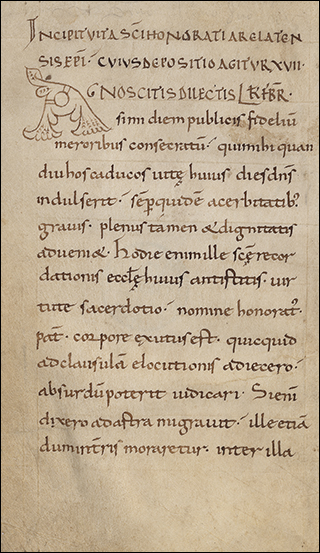 INCIPIT UITA SCI HONORATI ARELATEN
SIS EPI · CUIUS DEPOSITIO AGITUR XVII ·
AGNOSCITIS DILECTIS KL FEBR ·
sim diem publicis fideliū
meroribus consecratū · qui mihi quan
diu hos caducos uitę huius dies dn̄s
indulserit · sēp quidem acerbitatib;
grauis · plenus tamen & dignitatis
adueniæ · Hodie enim ille scę recor
dationis ecclę huius antistitis · uir
tute sacerdotio · nomine honorat᾽
pat̄ · corpore exutus est · quicquid
ad clausulā elocutionis adiecero ·
absurdū poterit iudicari · Si enī
dixero ad astra migrauit · ille etiā
dum int̄ris moraretur · inter illa